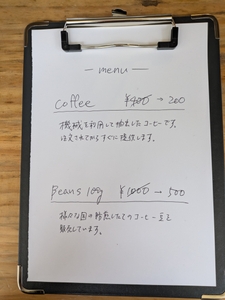 — menu —
Coffee ¥300 → 200
機械を利用して抽出したコーヒーです。
はなれてからすぐに提供します。
Beans 10g ¥1000 → 500
様々な国の焙煎したてのコーヒー豆を
販売しています。